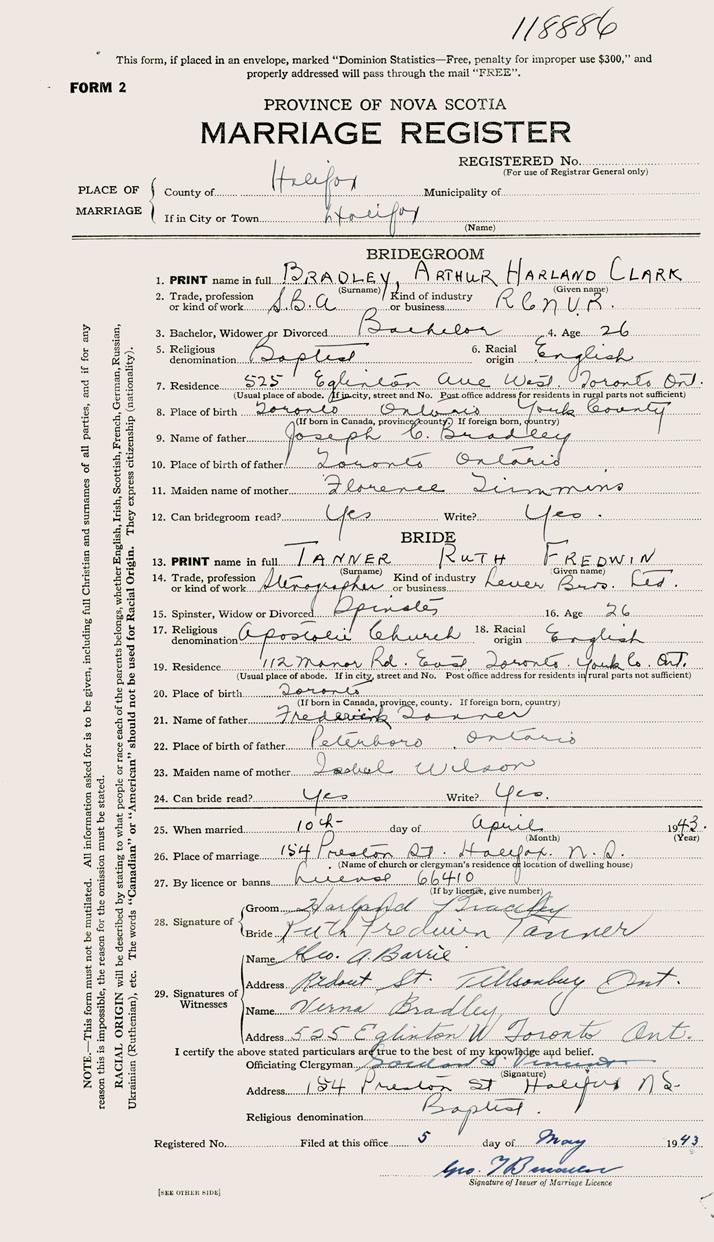 118886
This form, if placed in an envelope, marked "Dominion Statistics—Free, penalty for improper use $300," and
properly addressed will pass through the mail "FREE".
FORM 2
PROVINCE OF NOVA SCOTIA
MARRIAGE REGISTER
REGISTERED No.
(For use of Registrar General only)
PLACE OF MARRIAGE
County of Halifax Municipality of
If in City or Town Halifax
(Name)
BRIDEGROOM
1. PRINT name in full BRADLEY, ARTHUR HARLAND CLARK
(Surname) (Given name)
2. Trade, profession or kind of work S.B.A Kind of industry or business R.C.N.V.R.
3. Bachelor, Widower or Divorced Bachelor 4. Age 26
5. Religious denomination Baptist 6. Racial origin English
7. Residence 525 Eglinton Ave West. Toronto Ont.
(Usual place of abode. If in city, street and No. Post office address for residents in rural parts not sufficient)
8. Place of birth Toronto Ontario York County
(If born in Canada, province, county. If foreign born, country)
9. Name of father Joseph C. Bradley
10. Place of birth of father Toronto Ontario
11. Maiden name of mother Florence Timmins
12. Can bridegroom read? Yes Write? Yes.
BRIDE
13. PRINT name in full TANNER RUTH FREDWIN
(Surname) (Given name)
14. Trade, profession or kind of work Stenographer Kind of industry or business Lever Bros. Ltd.
15. Spinster, Widow or Divorced Spinster 16. Age 26
17. Religious denomination Apostolic Church 18. Racial origin English
19. Residence 112 Manor Rd. East Toronto. York Co. Ont.
(Usual place of abode. If in city, street and No. Post office address for residents in rural parts not sufficient)
20. Place of birth Toronto
(If born in Canada, province, county. If foreign born, country)
21. Name of father Frederick Tanner
22. Place of birth of father Peterboro Ontario
23. Maiden name of mother Isabel Wilson
24. Can bride read? Yes Write? Yes.
25. When married 10th day of April 1943.
(Month) (Year)
26. Place of marriage 154 Preston St. Halifax. N.S.
(Name of church or clergyman's residence or location of dwelling house)
27. By licence or banns License 66410
(If by licence, give number)
28. Signature of
Groom Harland Bradley
Bride Ruth Fredwin Tanner
29. Signatures of Witnesses
Name Geo. A Barrie
Address Ridout St. Tillsonburg Ont.
Name Verna Bradley
Address 525 Eglinton W Toronto Ont.
I certify the above stated particulars are true to the best of my knowledge and belief.
Officiating Clergyman Gordon S. Vincent
(Signature)
Address 154 Preston St Halifax N S.
Religious denomination Baptist.
Registered No. Filed at this office 5 day of May 1943
Geo.
Signature of Issuer of Marriage Licence
[SEE OTHER SIDE]
NOTE.—This form must not be mutilated. All information asked for is to be given, including full Christian and surnames of all parties, and if for any
reason this is impossible, the reason for the omission must be stated.
RACIAL ORIGIN will be described by stating to what people or race each of the parents belongs, whether English, Irish, Scottish, French, German, Russian,
Ukrainian (Ruthenian), etc. The words "Canadian" or "American" should not be used for Racial Origin. They express citizenship (nationality).